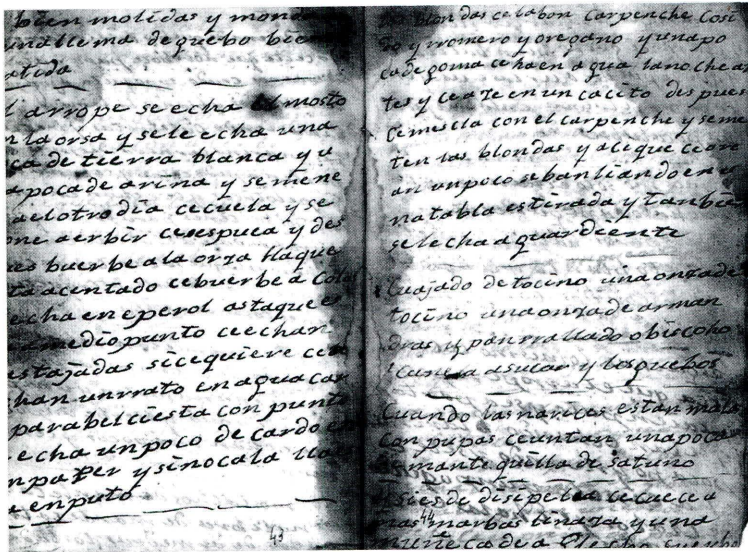 bien molidas y monda
una llema de guebo bien
atida
l arrope se echa el mosto
n la orsa y se le echa una
ca de tierra blanca y u
a poca de arina y semene
ael otro dia cecuela y se
one aerbir ceespuca y des
es buerbe a la orza llaque
ta acentado cebuerbe a cola
echa en eperol astaque e
medio punto ceechan
estajadas sicequiere ce
han unrrato en agua car
para bel ciesta con punto
echa un poco de cardo
npaper y sinocala lla
a enputo
43
las blondas celabon carpenche cosi
do y rromero y oregano yunapo
ca de goma cehaen agua lanoche an
tes y ceaze en un cacito despues
cemescla con el carpenche y seme
ten las blondas y ale que ceore
an unpoco sebanliando en u
na tabla estirada y tanbie
selecha aguardiente
Cuajado de tocino una onza de
tocino una onza de arman
dras y panrrallado o biscoho
canela asucar y los guebos
Cuando las narices estan malas
con pupas ceuntan una poca
de mantequilla de saturno
y si es de disipela cecuece
unas marbas linaza y una
muñeca de
44